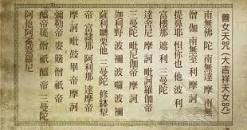 善女天咒(大吉祥天女咒)
南無佛陀 南無達摩 南無
僧伽 南無室利 摩訶
提鼻耶 怛你也他 波利
富樓那 遮利 三曼陀
達舍尼 摩訶毗訶羅伽帝
三曼陀 毗尼伽帝 摩訶
迦利野 波禰 波囉 波禰
薩利嚩栗他 三曼陀 修鉢犁
帝 富隸那 阿利那 達摩帝
摩訶毗鼓畢帝 摩訶
彌勒帝 婁簸僧祇帝
醯帝簁 僧祇醯帝 三曼陀
阿他阿㝹婆羅尼